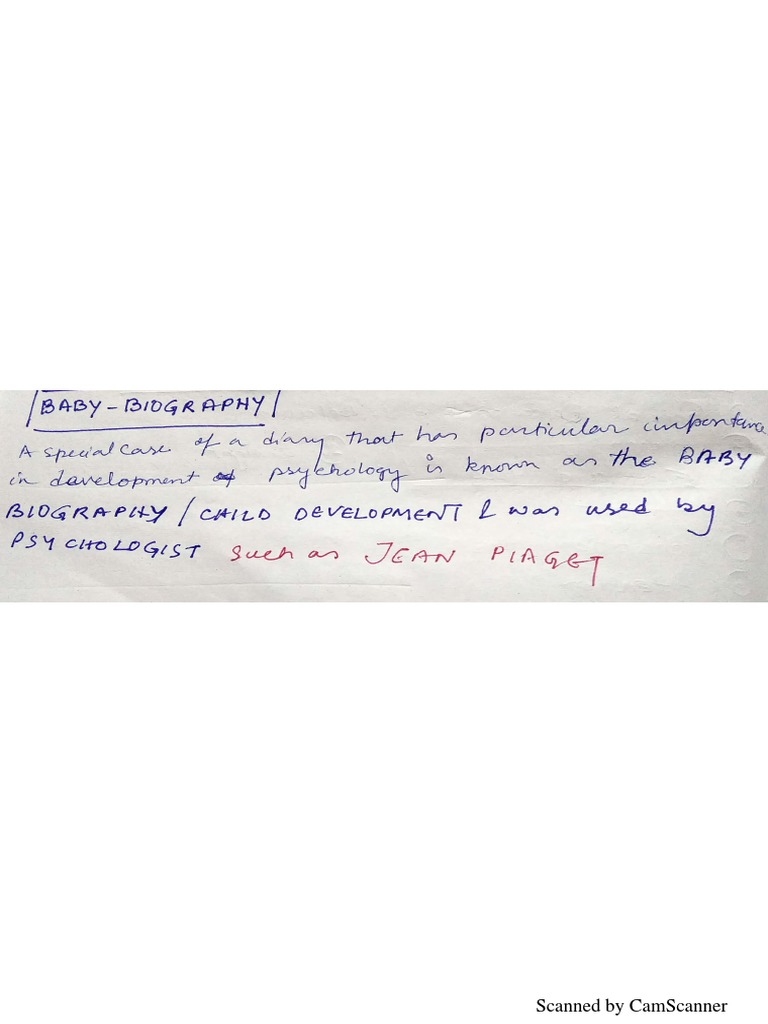 BABY-BIOGRAPHY
A special case of a diary that has particular importance
in development of psychology is known as the BABY
BIOGRAPHY / CHILD DEVELOPMENT & was used by
PSYCHOLOGIST such as JEAN PIAGET
Scanned by CamScanner